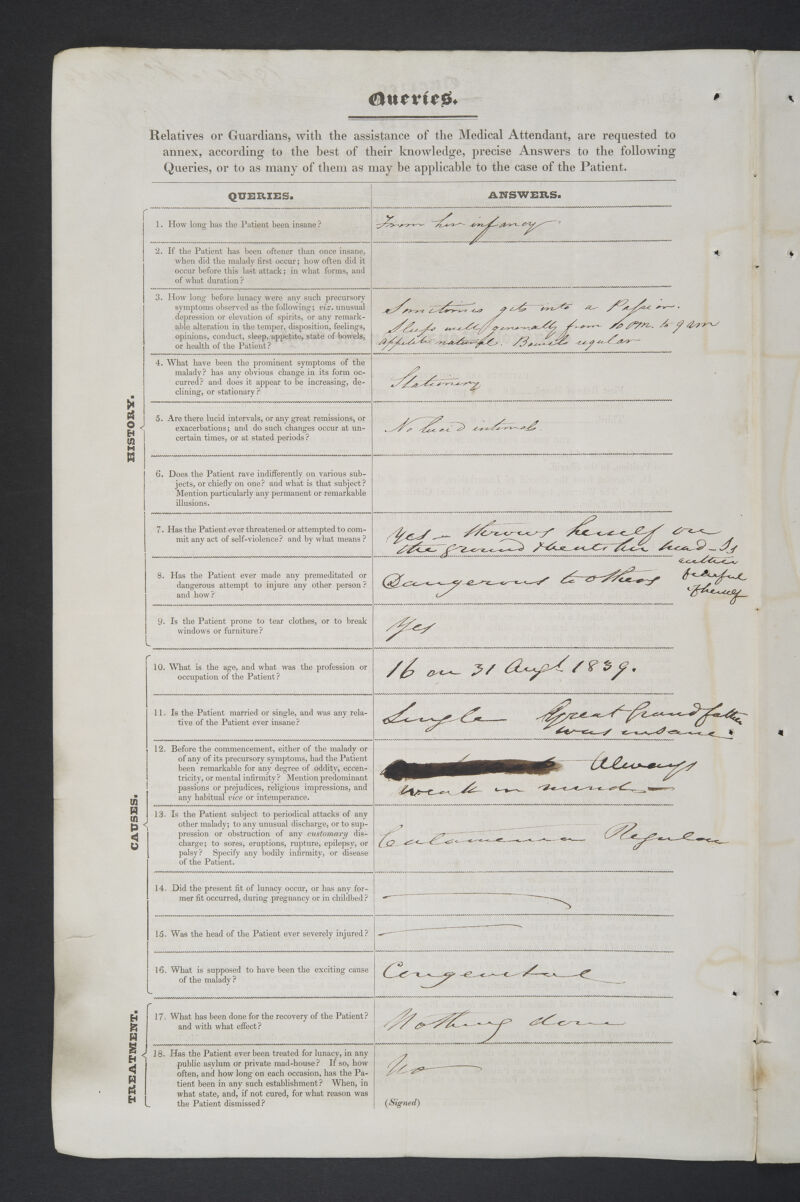 Queries.
Relatives or Guardians, with the assistance of the Medical Attendant, are requested to
annex, according to the best of their knowledge, precise Answers to the following
Queries, or to as many of them as may be applicable to the case of the Patient.
QUERIES.
ANSWERS.
HISTORY.
1. How long has the Patient been insane?
From her infancy
2. If the Patient has been oftener than once insane,
when did the malady first occur; how often did it
occur before this last attack; in what forms, and
of what duration?
3. How long before lunacy were any such precursory
symptoms observed as the following; viz. unusual
depression or elevation of spirits, or any remark-
able alteration in the temper, disposition, feelings,
opinions, conduct, sleep, appetite, state of bowels,
or health of the Patient?
Sometimes gets into a Passion.
Sleeps well generally from 10 pm. to 9 am
appetite natural. Bowels regular
4. What have been the prominent symptoms of the
malady? has any obvious change in its form oc-
curred? and does it appear to be increasing, de-
clining, or stationary?
Stationary
5. Are there lucid intervals, or any great remissions, or
exacerbations; and do such changes occur at un-
certain times, or at stated periods?
No lucid intervals.
6. Does the Patient rave indifferently on various sub-
jects, or chiefly on one? and what is that subject?
Mention particularly any permanent or remarkable
illusions.
7. Has the Patient ever threatened or attempted to com-
mit any act of self-violence? and by what means?
Yes – throws herself on
the ground & beats her head – Is
8. Has the Patient ever made any premeditated or
dangerous attempt to injure any other person?
and how?
Dangerous to others
of herself
9. Is the Patient prone to tear clothes, or to break
windows or furniture?
Yes
CAUSES.
10. What is the age, and what was the profession or
occupation of the Patient?
16 on 31 Augt. 1839.
11. Is the Patient married or single, and was any rela-
tive of the Patient ever insane?
Single Great Grandfather
was insane.
12. Before the commencement, either of the malady or
of any of its precursory symptoms, had the Patient
been remarkable for any degree of oddity, eccen-
tricity, or mental infirmity? Mention predominant
passions or prejudices, religious impressions, and
any habitual vice or intemperance.
Always
weak in mind –
13. Is the Patient subject to periodical attacks of any
other malady; to any unusual discharge, or to sup-
pression or obstruction of any customary dis-
charge; to sores, eruptions, rupture, epilepsy, or
palsy? Specify any bodily infirmity, or disease
of the Patient.
Catamenia Regular
14. Did the present fit of lunacy occur, or has any for-
mer fit occurred, during pregnancy or in childbed?
15. Was the head of the Patient ever severely injured?
16. What is supposed to have been the exciting cause
of the malady?
Congenital
TREATMENT.
17. What has been done for the recovery of the Patient?
and with what effect?
Nothing done
18. Has the Patient ever been treated for lunacy, in any
public asylum or private mad-house? If so, how
often, and how long on each occasion, has the Pa-
tient been in any such establishment? When, in
what state, and, if not cured, for what reason was
the Patient dismissed?
No
(Signed)